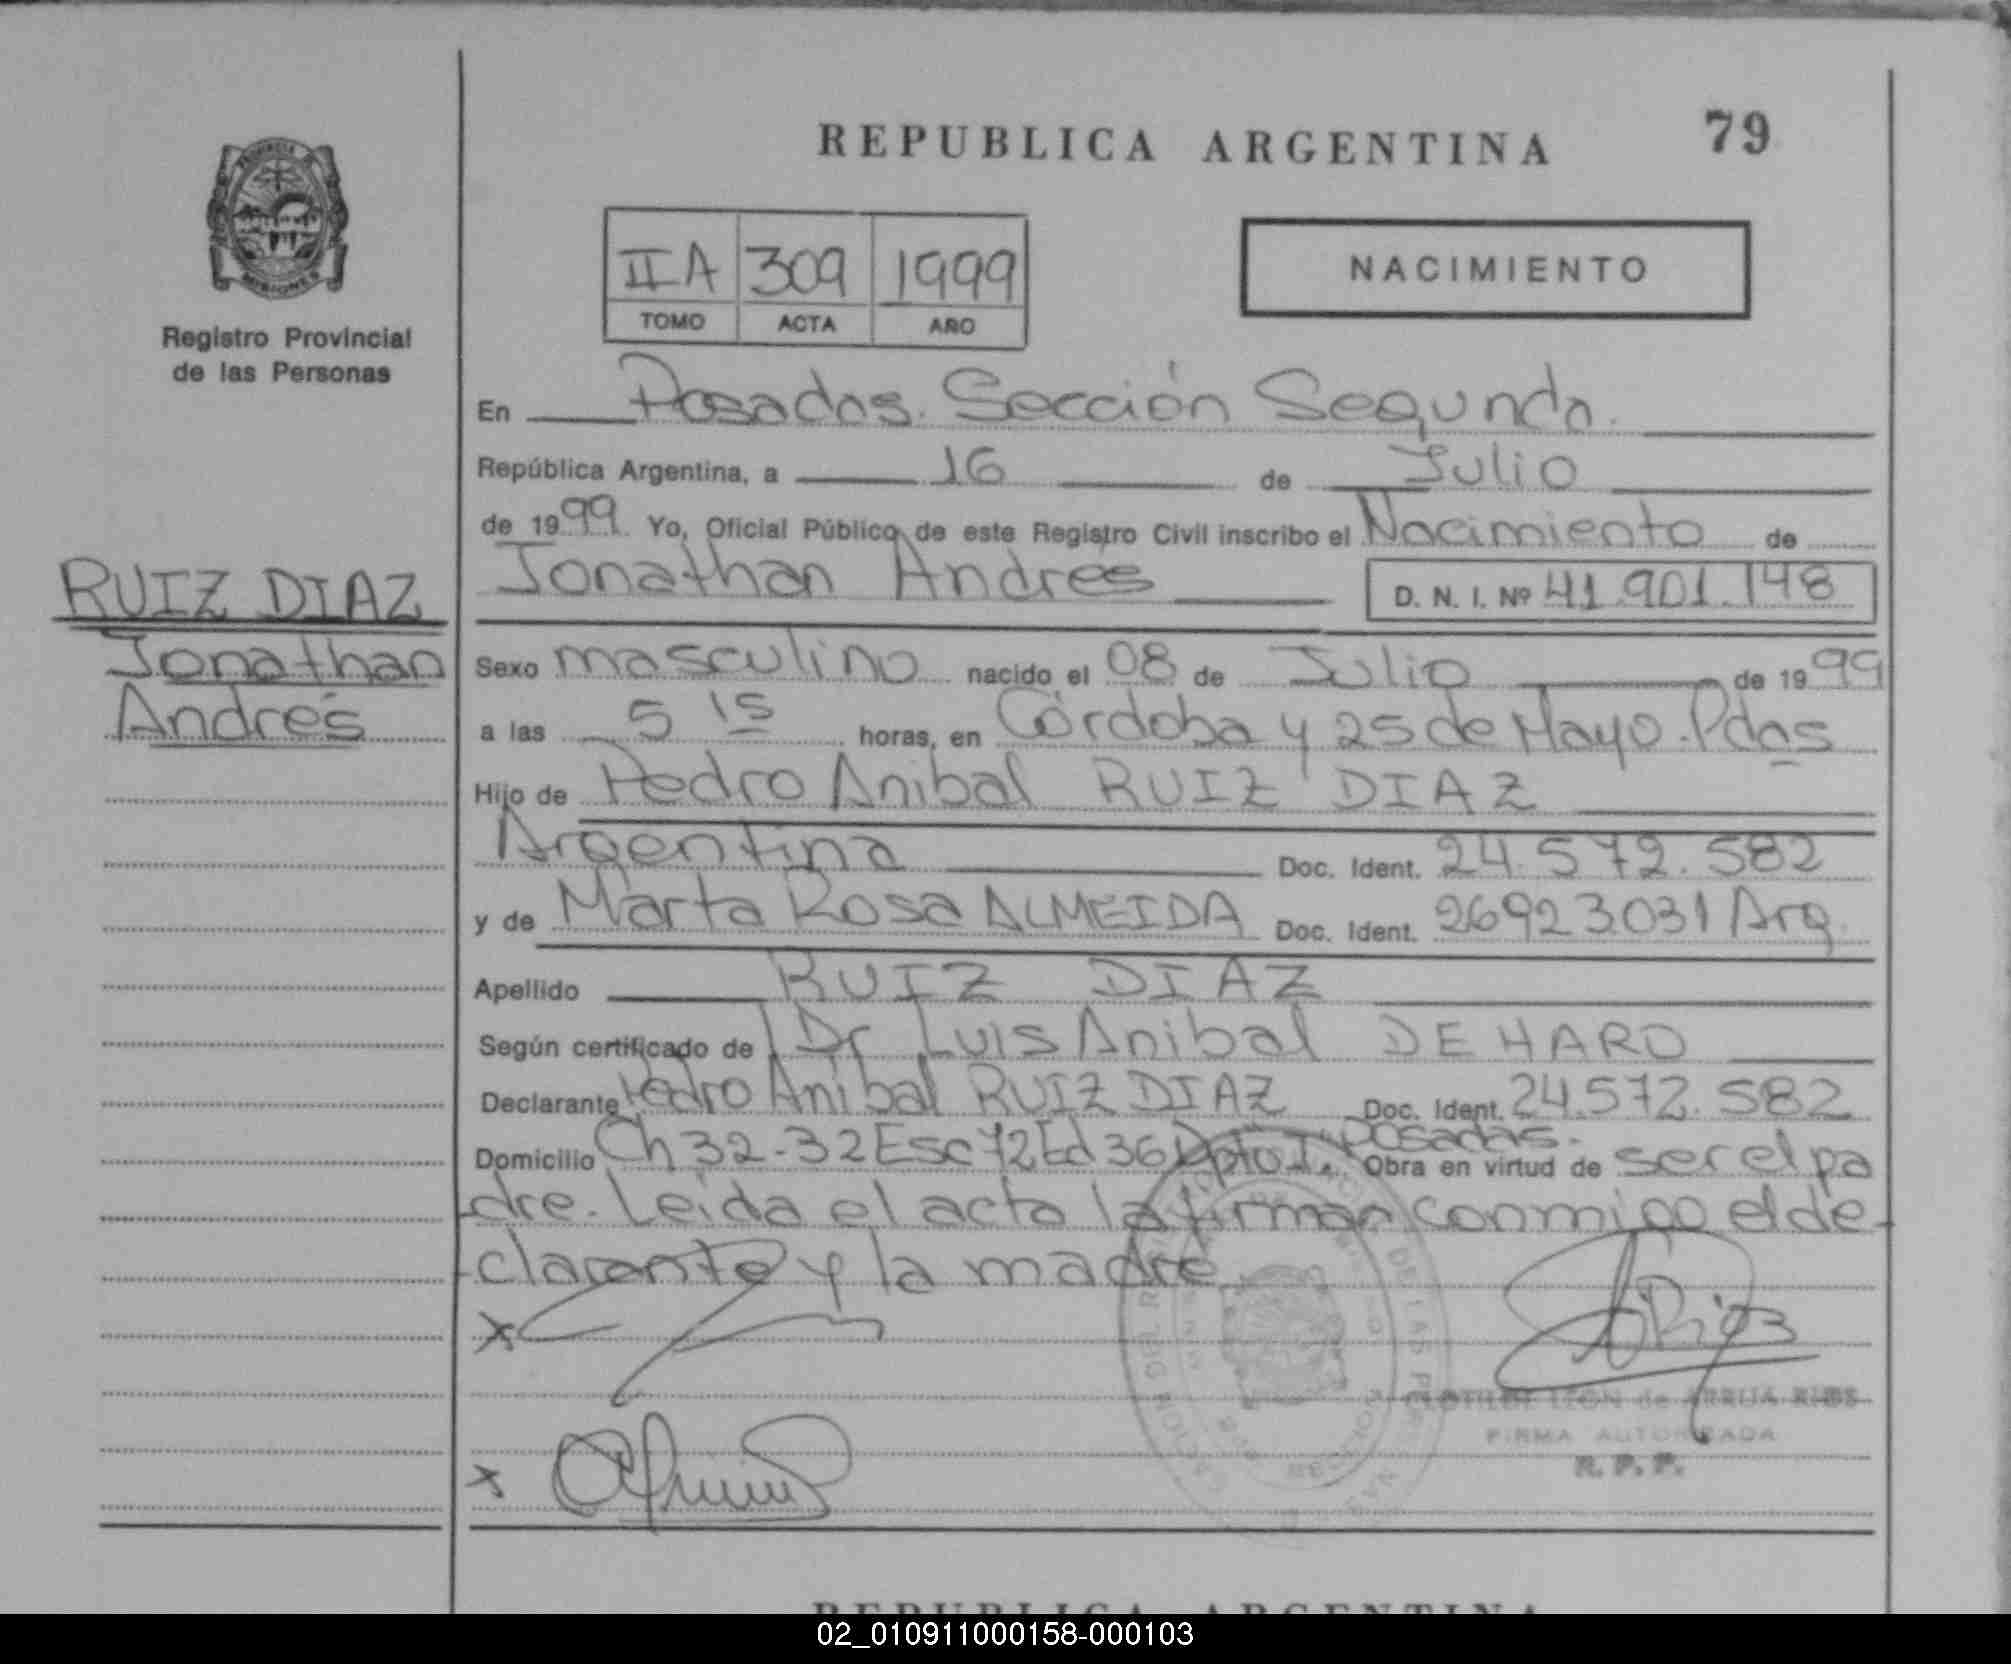 REPUBLICA ARGENTINA
79
IIA 309 1999
TOMO ACTA AÑO
NACIMIENTO
Registro Provincial
de las Personas
En Posadas. Sección Segunda.
República Argentina, a 16 de Julio
de 1999 Yo, Oficial Público de este Registro Civil inscribo el Nacimiento de
Jonathan Andrés
D. N. I. Nº 41.901.148
RUIZ DIAZ
Jonathan
Andrés
Sexo masculino nacido el 08 de Julio de 1999
a las 5 15 horas, en Córdoba y 25 de Mayo. Pdas
Hijo de Pedro Anibal RUIZ DIAZ
Argentina Doc. Ident. 24.572.582
y de Marta Rosa ALMEIDA Doc. Ident. 26923031 Arg.
Apellido RUIZ DIAZ
Según certificado de Dr Luis Anibal DE HARO
Declarante Pedro Anibal RUIZ DIAZ Doc. Ident. 24.572.582
Domicilio Ch 32-32 Esc 72 Ed 36 Dpto I. Posadas. Obra en virtud de ser el pa
dre. Leida el acta la firman conmigo el de-
clarante y la madre
CLOTILDE LEON de ARRUA RIOS
FIRMA AUTORIZADA
R. P. P.
REPUBLICA ARGENTINA
02_010911000158-000103